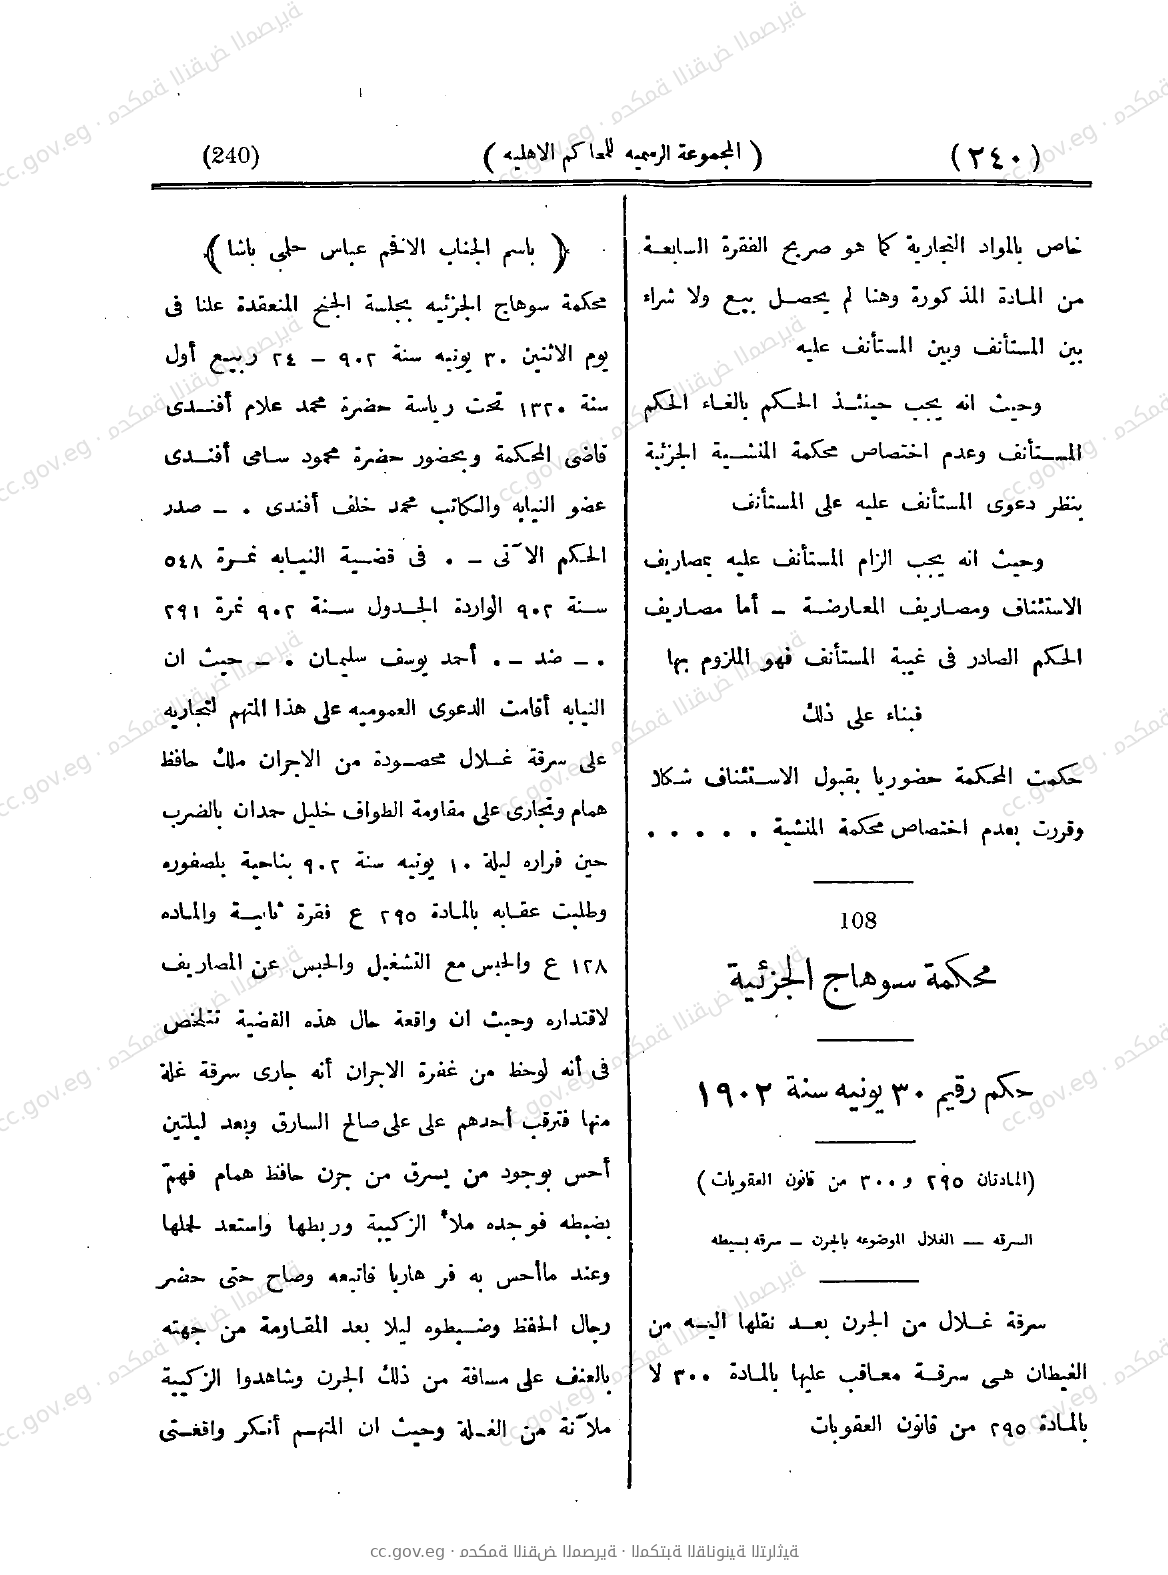 (٢٤٠) ( المجموعة الرسميه للمحاكم الاهليه ) (240)
خاص بالمواد التجارية كما هو صريح الفقرة السابعة
من المادة المذكورة وهنا لم يحصل بيع ولا شراء
بين المستأنف وبين المستأنف عليه
وحيث انه يجب حينئذ الحكم بالغاء الحكم
المستأنف وعدم اختصاص محكمة المنشية الجزئية
بنظر دعوى المستأنف عليه على المستأنف
وحيث انه يجب الزام المستأنف عليه بمصاريف
الاستئناف ومصاريف المعارضة – أما مصاريف
الحكم الصادر فى غيبة المستأنف فهو الملزوم بها
فبناء على ذلك
حكمت المحكمة حضوريا بقبول الاستئناف شكلا
وقررت بعدم اختصاص محكمة المنشية . . . . .
108
محكمة سوهاج الجزئية
حكم رقيم ٣٠ يونيه سنة ١٩٠٢
(المادتان ٢٩٥ و ٣٠٠ من قانون العقوبات)
السرقه — الغلال الموضوعه بالجرن – سرقه بسيطه
سرقة غلال من الجرن بعد نقلها اليه من
الغيطان هى سرقة معاقب عليها بالمادة ٣٠٠ لا
بالمادة ٢٩٥ من قانون العقوبات
( باسم الجناب الافخم عباس حلمى باشا )
محكمة سوهاج الجزئيه بجلسة الجنح المنعقدة علنا فى
يوم الاثنين ٣٠ يونيه سنة ٩٠٢ – ٢٤ ربيع أول
سنة ١٣٢٠ تحت رياسة حضرة محمد علام أفندى
قاضى المحكمة وبحضور حضرة محمود سامى أفندى
عضو النيابه والكاتب محمد خلف أفندى . – صدر
الحكم الآتى – . فى قضية النيابه نمرة ٥٤٨
سنة ٩٠٢ الواردة الجدول سنة ٩٠٢ نمرة ٢٩١
. – ضد – . أحمد يوسف سليمان . – حيث ان
النيابه أقامت الدعوى العموميه على هذا المتهم لتجاريه
على سرقة غلال محصودة من الاجران ملك حافظ
همام وتجارى على مقاومة الطواف خليل حمدان بالضرب
حين فراره ليلة ١٠ يونيه سنة ٩٠٢ بناحية بلصفوره
وطلبت عقابه بالمادة ٢٩٥ ع فقرة ثانية والماده
١٢٨ ع والحبس مع التشغيل والحبس عن المصاريف
لاقتداره وحيث ان واقعة حال هذه القضية تتلخص
فى أنه لوحظ من غفرة الاجران أنه جارى سرقة غلة
منها فترقب أحدهم على على صالح السارق وبعد ليلتين
أحس بوجود من يسرق من جرن حافظ همام فهمّ
بضبطه فوجده ملأ الزكيبة وربطها واستعد لحملها
وعند ماأحس به فر هاربا فاتبعه وصاح حتى حضر
رجال الحفظ وضبطوه ليلا بعد المقاومة من جهته
بالعنف على مسافة من ذلك الجرن وشاهدوا الزكيبة
ملآنة من الغلة وحيث ان المتهم أنكر واقعتى
cc.gov.eg · محكمة النقض المصرية · المكتبة القانونية التراثية